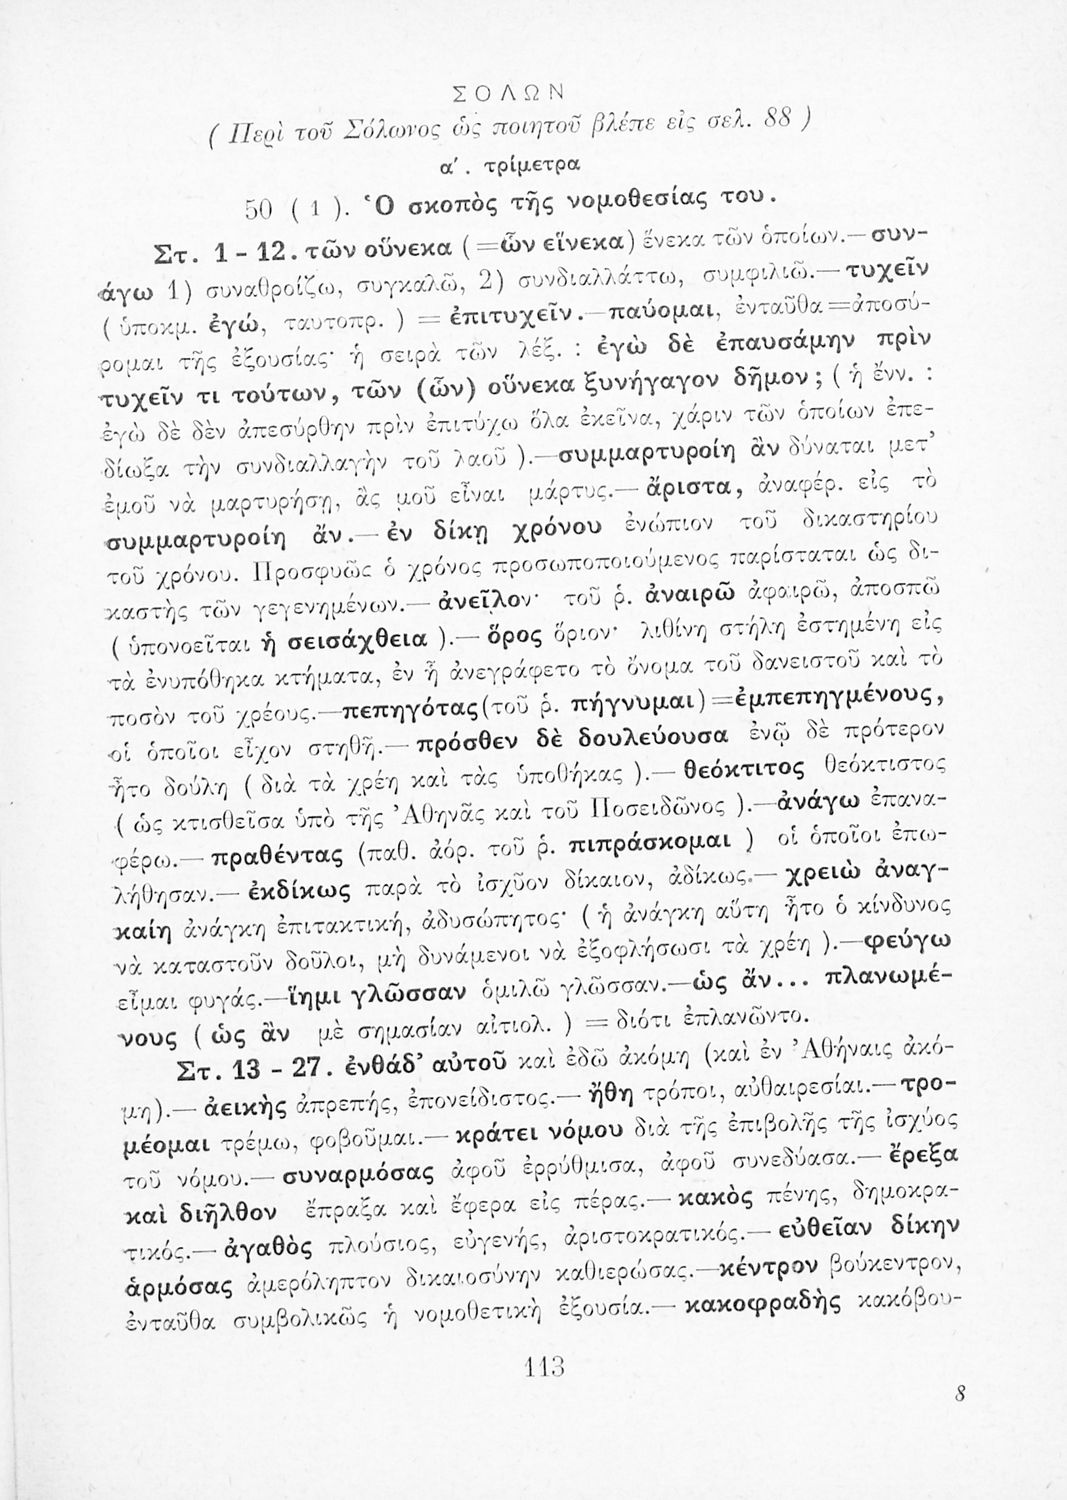 ΣΟΛΩΝ
( Περὶ τοῦ Σόλωνος ὡς ποιητοῦ βλέπε εἰς σελ. 88 )
α΄. τρίμετρα
50 ( 1 ). Ὁ σκοπὸς τῆς νομοθεσίας του.
Στ. 1 - 12. τῶν οὕνεκα ( =ὧν εἵνεκα) ἕνεκα τῶν ὁποίων.— συν-
άγω 1) συναθροίζω, συγκαλῶ, 2) συνδιαλλάττω, συμφιλιῶ.— τυχεῖν
( ὑποκμ. ἐγώ, ταυτοπρ. ) = ἐπιτυχεῖν.— παύομαι, ἐνταῦθα=ἀποσύ-
ρομαι τῆς ἐξουσίας· ἡ σειρὰ τῶν λέξ. : ἐγὼ δὲ ἐπαυσάμην πρὶν
τυχεῖν τι τούτων, τῶν (ὧν) οὕνεκα ξυνήγαγον δῆμον ; ( ἡ ἔνν. :
ἐγὼ δὲ δὲν ἀπεσύρθην πρὶν ἐπιτύχω ὅλα ἐκεῖνα, χάριν τῶν ὁποίων ἐπε-
δίωξα τὴν συνδιαλλαγὴν τοῦ λαοῦ ).—συμμαρτυροίη ἂν δύναται μετ’
ἐμοῦ νὰ μαρτυρήσῃ, ἂς μοῦ εἶναι μάρτυς.— ἄριστα, ἀναφέρ. εἰς τὸ
συμμαρτυροίη ἄν.— ἐν δίκῃ χρόνου ἐνώπιον τοῦ δικαστηρίου
τοῦ χρόνου. Προσφυῶς ὁ χρόνος προσωποποιούμενος παρίσταται ὡς δι-
καστὴς τῶν γεγενημένων.— ἀνεῖλον· τοῦ ῥ. ἀναιρῶ ἀφαιρῶ, ἀποσπῶ
( ὑπονοεῖται ἡ σεισάχθεια ).— ὅρος ὅριον· λιθίνη στήλη ἐστημένη εἰς
τὰ ἐνυπόθηκα κτήματα, ἐν ᾗ ἀνεγράφετο τὸ ὄνομα τοῦ δανειστοῦ καὶ τὸ
ποσὸν τοῦ χρέους.—πεπηγότας(τοῦ ῥ. πήγνυμαι)=ἐμπεπηγμένους,
οἱ ὁποῖοι εἶχον στηθῆ.— πρόσθεν δὲ δουλεύουσα ἐνῷ δὲ πρότερον
ἦτο δούλη ( διὰ τὰ χρέη καὶ τὰς ὑποθήκας ).— θεόκτιτος θεόκτιστος
( ὡς κτισθεῖσα ὑπὸ τῆς Ἀθηνᾶς καὶ τοῦ Ποσειδῶνος ).—ἀνάγω ἐπανα-
φέρω.— πραθέντας (παθ. ἀόρ. τοῦ ῥ. πιπράσκομαι ) οἱ ὁποῖοι ἐπω-
λήθησαν.— ἐκδίκως παρὰ τὸ ἰσχῦον δίκαιον, ἀδίκως.— χρειὼ ἀναγ-
καίη ἀνάγκη ἐπιτακτική, ἀδυσώπητος· ( ἡ ἀνάγκη αὕτη ἦτο ὁ κίνδυνος
νὰ καταστοῦν δοῦλοι, μὴ δυνάμενοι νὰ ἐξοφλήσωσι τὰ χρέη ).—φεύγω
εἶμαι φυγάς.—ἵημι γλῶσσαν ὁμιλῶ γλῶσσαν.—ὡς ἄν... πλανωμέ-
νους ( ὡς ἂν μὲ σημασίαν αἰτιολ. ) = διότι ἐπλανῶντο.
Στ. 13 - 27. ἐνθάδ’ αὐτοῦ καὶ ἐδῶ ἀκόμη (καὶ ἐν Ἀθήναις ἀκό-
μη).— ἀεικὴς ἀπρεπής, ἐπονείδιστος.— ἤθη τρόποι, αὐθαιρεσίαι.— τρο-
μέομαι τρέμω, φοβοῦμαι.— κράτει νόμου διὰ τῆς ἐπιβολῆς τῆς ἰσχύος
τοῦ νόμου.— συναρμόσας ἀφοῦ ἐρρύθμισα, ἀφοῦ συνεδύασα.— ἔρεξα
καὶ διῆλθον ἔπραξα καὶ ἔφερα εἰς πέρας.— κακὸς πένης, δημοκρα-
τικός.— ἀγαθὸς πλούσιος, εὐγενής, ἀριστοκρατικός.— εὐθεῖαν δίκην
ἁρμόσας ἀμερόληπτον δικαιοσύνην καθιερώσας.—κέντρον βούκεντρον,
ἐνταῦθα συμβολικῶς ἡ νομοθετικὴ ἐξουσία.— κακοφραδὴς κακόβου-
113
8